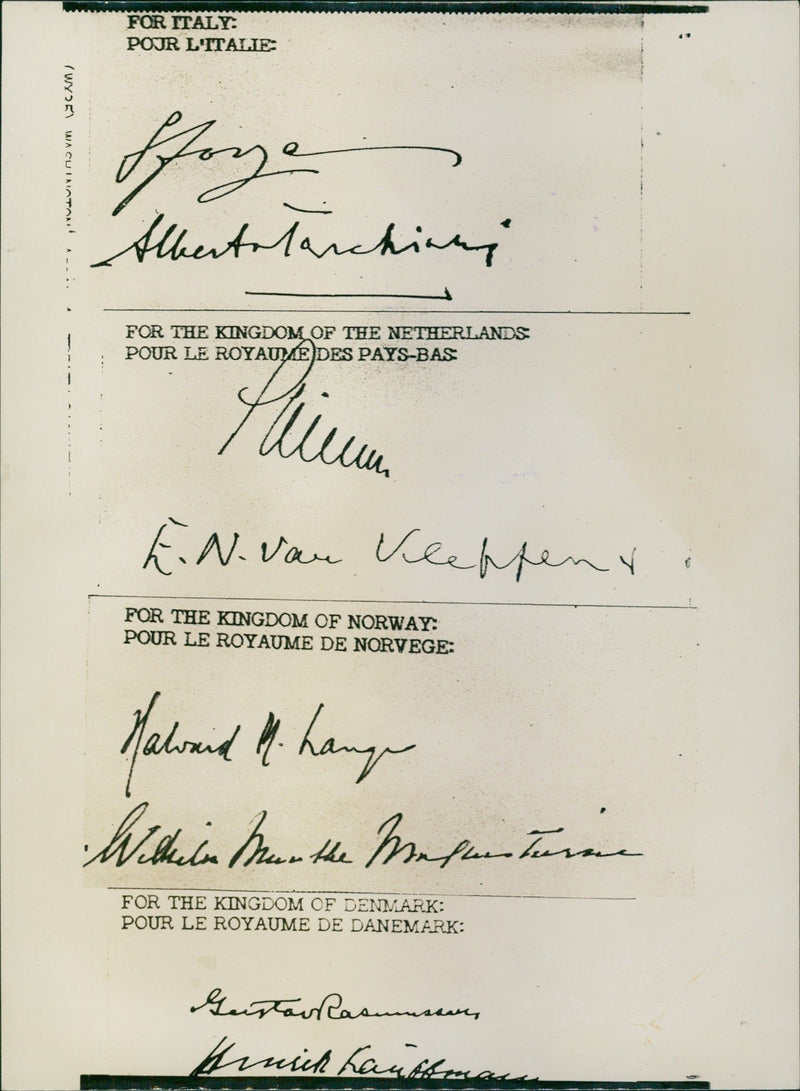 FOR ITALY:
POUR L'ITALIE:
Sforza
Alberto Tarchiani
FOR THE KINGDOM OF THE NETHERLANDS:
POUR LE ROYAUME DES PAYS-BAS:
E. N. van Kleffens
FOR THE KINGDOM OF NORWAY:
POUR LE ROYAUME DE NORVEGE:
Halvard M. Lange
Wilhelm Munthe Morgenstierne
FOR THE KINGDOM OF DENMARK:
POUR LE ROYAUME DE DANEMARK:
Gustav Rasmussen
Henrik Kauffmann